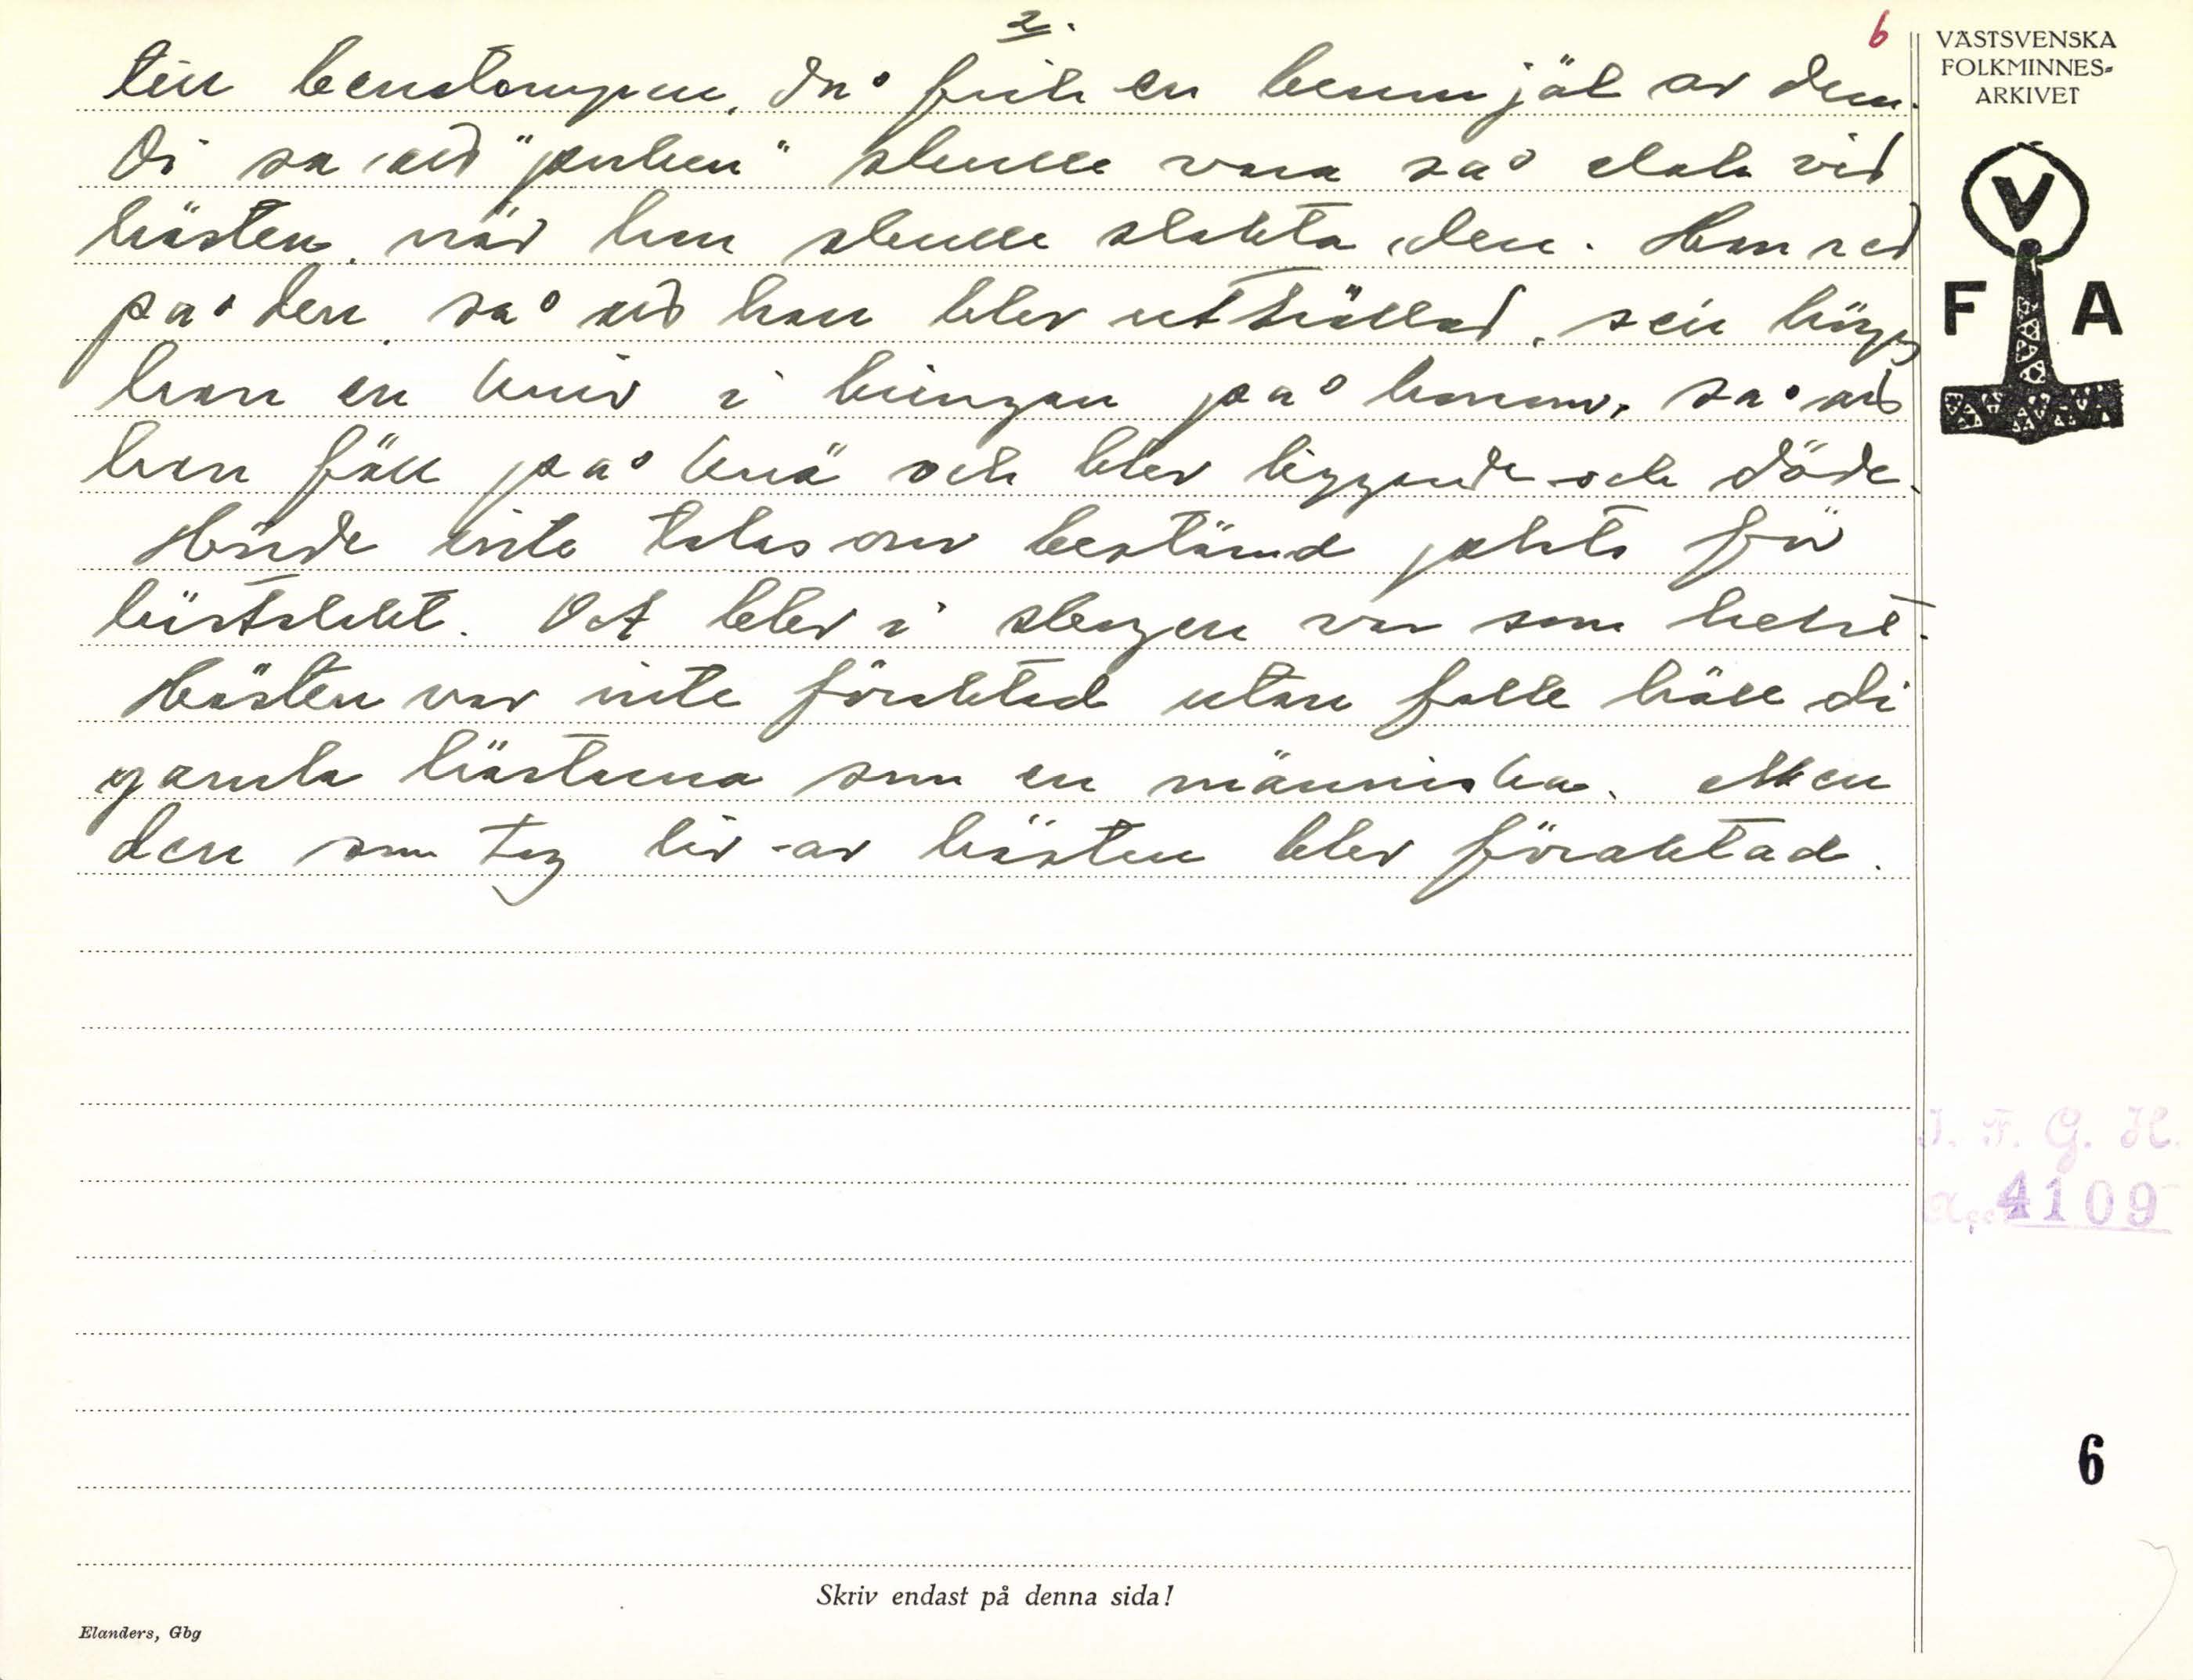 2.
6
till benstampen, då fick en benmjöl av dem.
Di sa att "pecken" skulle vara så elak vid
hästen, när han skulle slakta den. Han red
på den, så att han blev uthållad, sen högg
han en kniv i bringan på honom, så att
han föll på knä och blev liggande och döde.
Hörde inte talas om bestämd plats för
hästslakt. Det blev i skogen var som helst.
Hästen var inte föraktad utan folk höll di
gamla hästarna som en människa. Men
den som tog liv av hästen blev föraktad.
VÄSTSVENSKA
FOLKMINNES-
ARKIVET
V
F A
I. F. G. H.
Acc. 4109
6
Skriv endast på denna sida!
Elanders, Gbg